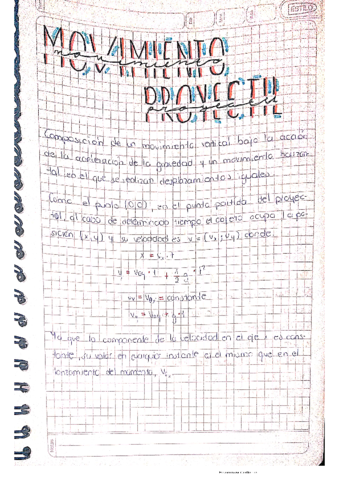 MOVIMIENTO
movimiento
PROYECTIL
proyectil
Composición de un movimiento vertical bajo la acción
de la aceleración de la gravedad y un movimiento horizon-
tal en el que se realizan desplazamientos iguales.
Como el punto (0,0), es el punto partida del proyec-
til, al cabo de determinado tiempo el objeto ocupa la po-
sición (x,y) y su velocidad es v = (vx; vy), donde
x = vx · t
= constante
Ya que la componente de la velocidad en el eje x es cons-
tante, su valor en cualquier instante es el mismo que en el
lanzamiento del momento, Vx.